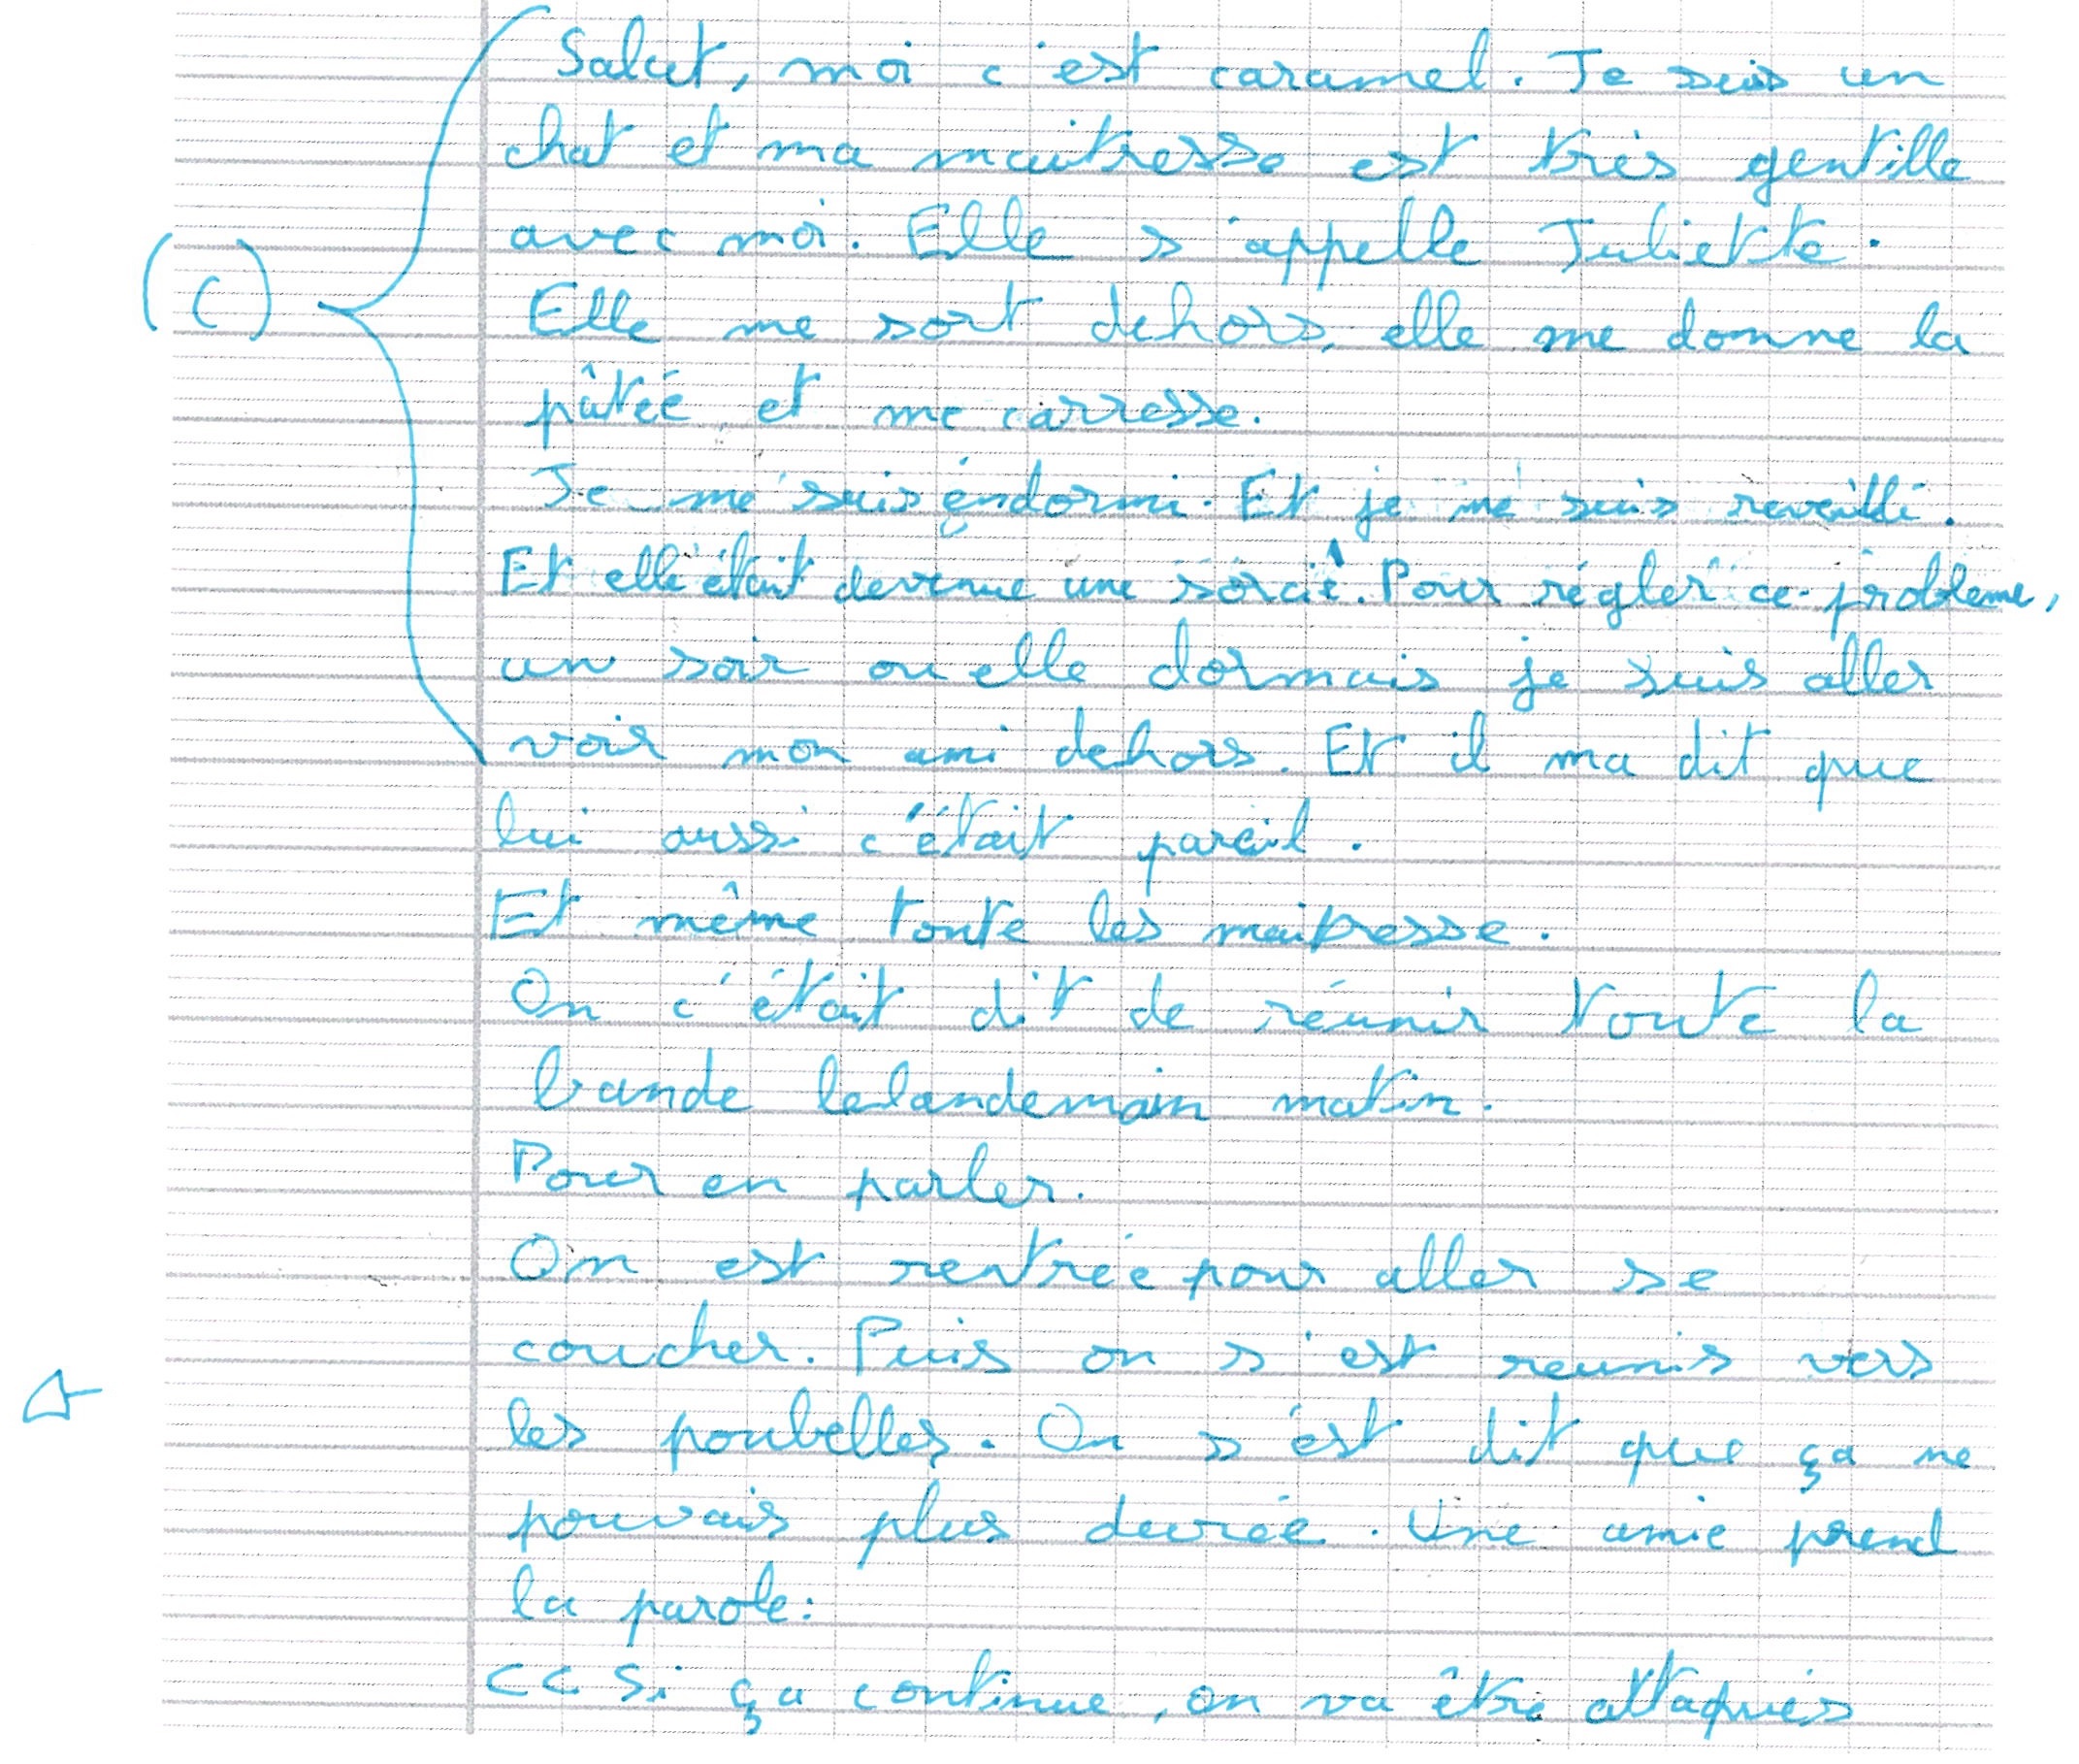 Salut, moi c'est caramel. Je suis un
chat et ma maitresse est très gentille
avec moi. Elle s'appelle Juliette.
(C)
Elle me sort dehors, elle me donne la
pâtée et me carresse.
Je me suis éndormi. Et je me suis reveillé.
Et elle était devenue une sorciè. Pour régler ce probleme,
un soir ou elle dormais je suis aller
voir mon ami dehors. Et il ma dit que
lui aussi c'était pareil.
Et même toute les maitresse.
On c'était dit de réunir toute la
bande lelandemain matin.
Pour en parler.
On est rentrée pour aller se
coucher. Puis on s'est reunis vers
les poubelles. On s'est dit que ça ne
pouvais plus durée. Une amie prend
la parole:
<< Si ça continue, on va être attaqués